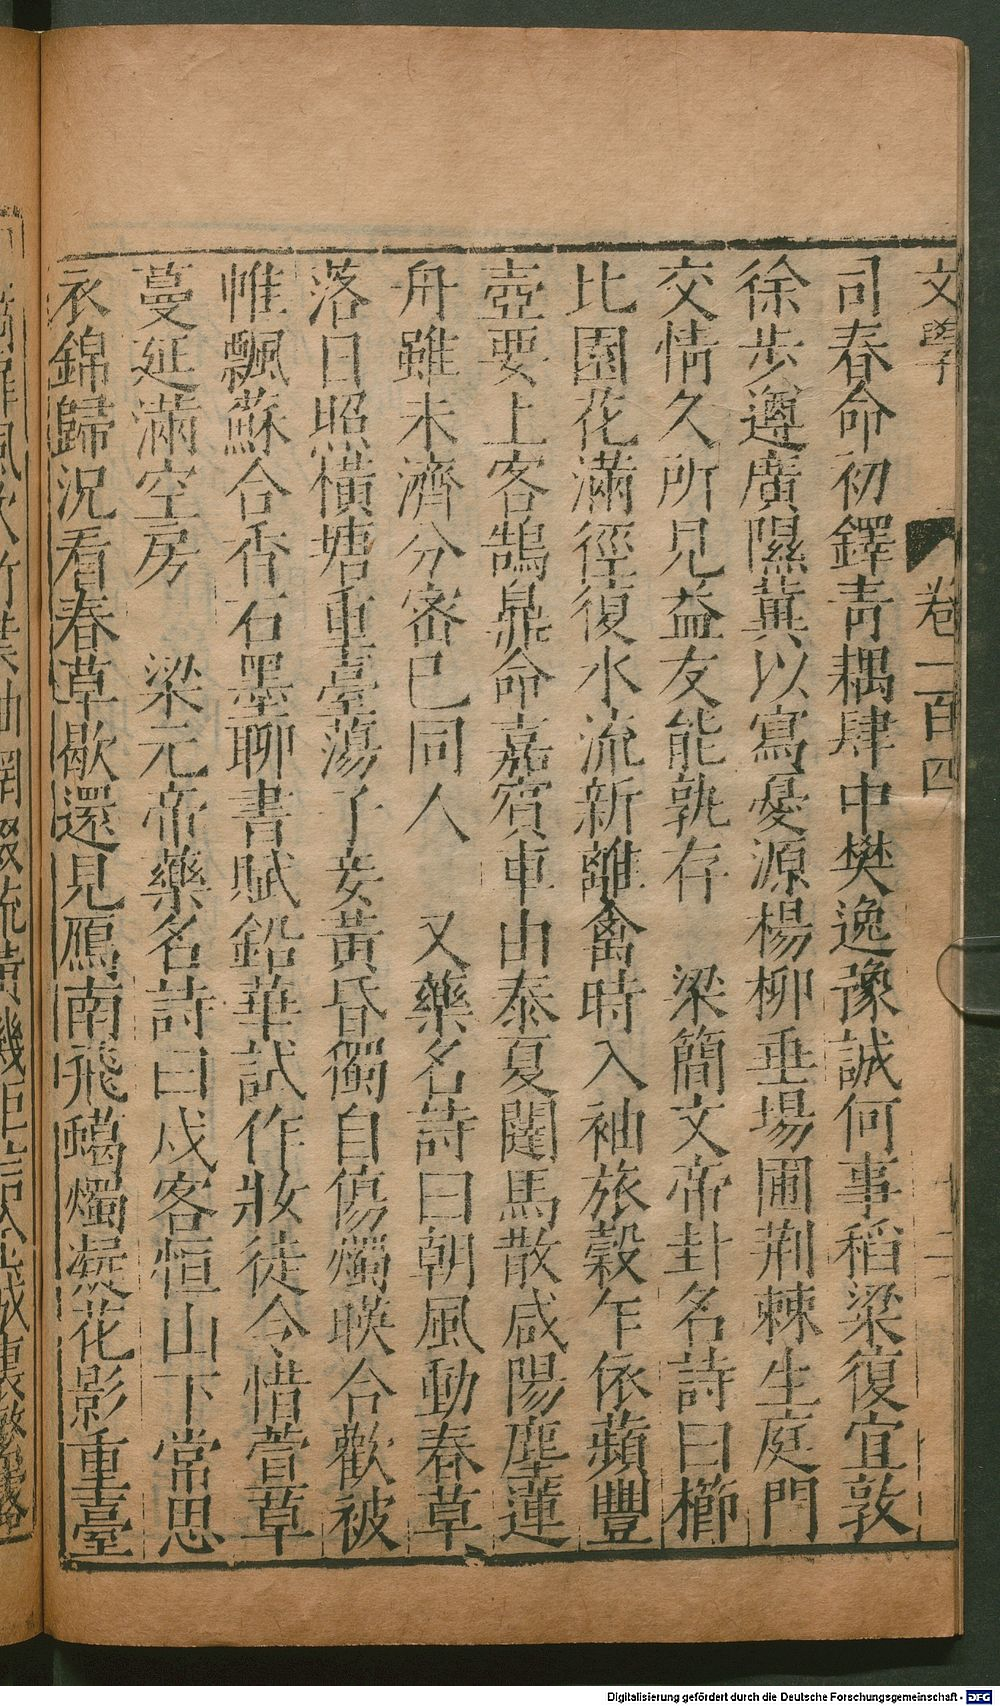 文學
卷一百四
司春命初鐸青耦肆中樊逸豫誠何事稻梁復宜敦
徐步遵廣隰蓂以寫憂源楊柳垂場圃荆棘生庭門
交情久所見益友能孰存　梁簡文帝卦名詩曰櫛
比園花滿徑復水流新離禽時入袖旅穀乍依蘋豐
壺要上客鵠鼎命嘉賓車由泰夏闥馬散咸陽塵蓮
舟雖未濟分密已同人　又藥名詩曰朝風動春草
落日照横塘重臺蕩子妾黃昏獨自傷燭暎合歡被
帷飄蘇合香石墨聊書賦鉛華試作妝徒令惜萱草
蔓延滿空房　梁元帝藥名詩曰戍客恒山下常思
衣錦歸况看春草歇還見鴈南飛蠟燭凝花影重臺